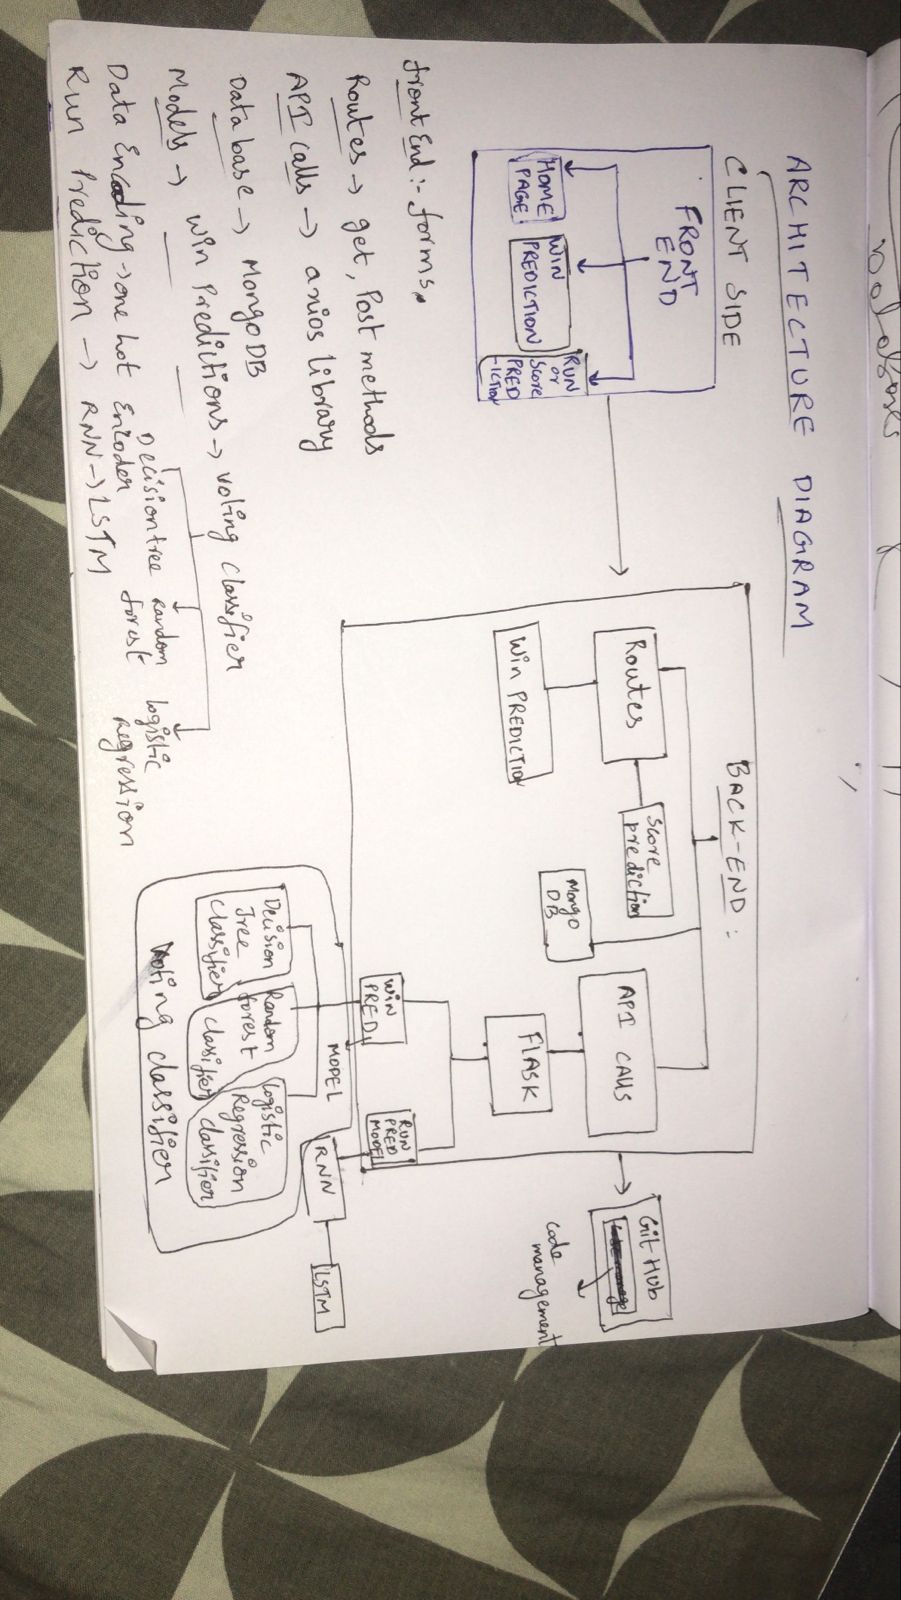 Databases
ARCHITECTURE DIAGRAM
CLIENT SIDE
FRONT
END
HOME
PAGE
WIN
PREDICTION
RUN
or
Score
PRED
-ICTION
BACK-END :
Routes
Score
prediction
Win PREDICTION
Mongo
DB
API CALLS
FLASK
WIN
PRED
MODEL
RUN
PRED
MODEL
RNN
LSTM
Decision
Tree
Classifier
Random
forest
classifier
Logistic
Regression
classifier
Voting classifier
Git Hub
code
management
front End :- forms.
Routes → get, Post methods
API calls → axios library
Data base → Mongo DB
Models → Win Predictions → voting classifier
Decision tree
Random
forest
logistic
regression
Data Encoding → one hot Encoder
Run Prediction → RNN → LSTM